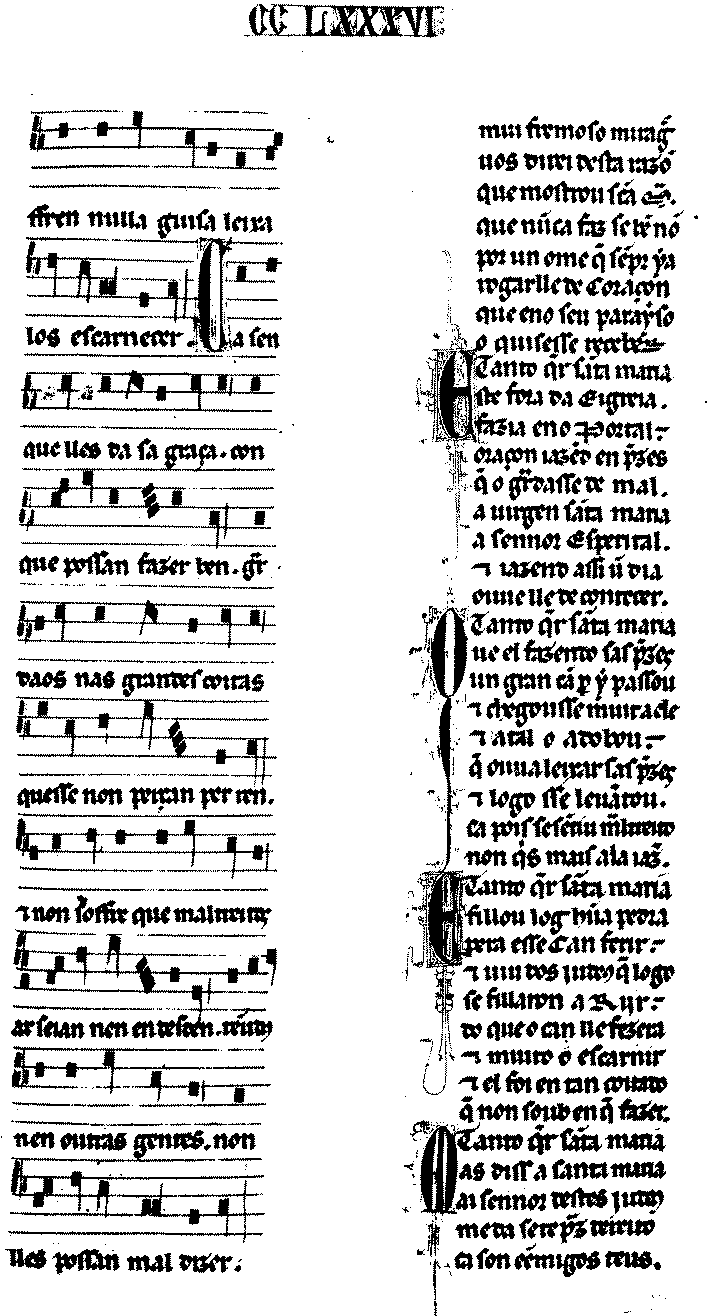 CC LXXXVI
ffren nulla guisa leixa
los escarnecer. Ca sen
que lles da sa graça. con
que possan fazer ben. gr̃
daos nas grandes coitas
quesse non peiçan per ren.
⁊ non soffre que malmetuz
ar seian nen endesden.
nen outras gentes. non
lles possan mal dizer.
mui fremoso mirag̃
uos direi desta razõ
que mostrou sc̃a
que nũca faz se bẽ nõ
por un ome q̃ sẽpr ya
rogarlle de coraçon
que eno seu parayso
o quisesse
Tanto q̃r sãta maria
Este fora da eigreia.
fazia eno portal.
oraçon iazẽd en p̃zes
q̃ o gr̃dasse de mal.
a uirgen sãta maria
a sennor esperital.
⁊ iazend assi ũ dia
ouuelle de contecer.
Tanto q̃r sãta maria
Oue el fazendo sas p̃zes
un gran cã p̲ y passou
⁊ chegousse
⁊ atal o adobou.
q̃ ouu a leixar sas p̃zes
⁊ logo sse leuãtou.
ca pois se sẽtiu
non q̃s mais ala iaz̃.
Tanto q̃r sãta maria
E fillou log hũa pedra
pera esse can ferir.
⁊ uiu dos iudeus q̃ logo
se fillaron a Riir.
do que o can lle fezera
⁊ muito o escarnir
⁊ el foi en tan coitado
q̃ non soub en q̃ fazer.
Tanto q̃r sãta maria
Mas diss a santa maria
ai sennor destes iudeus
me da se te p̃z dereito
ca son eẽmigos teus.